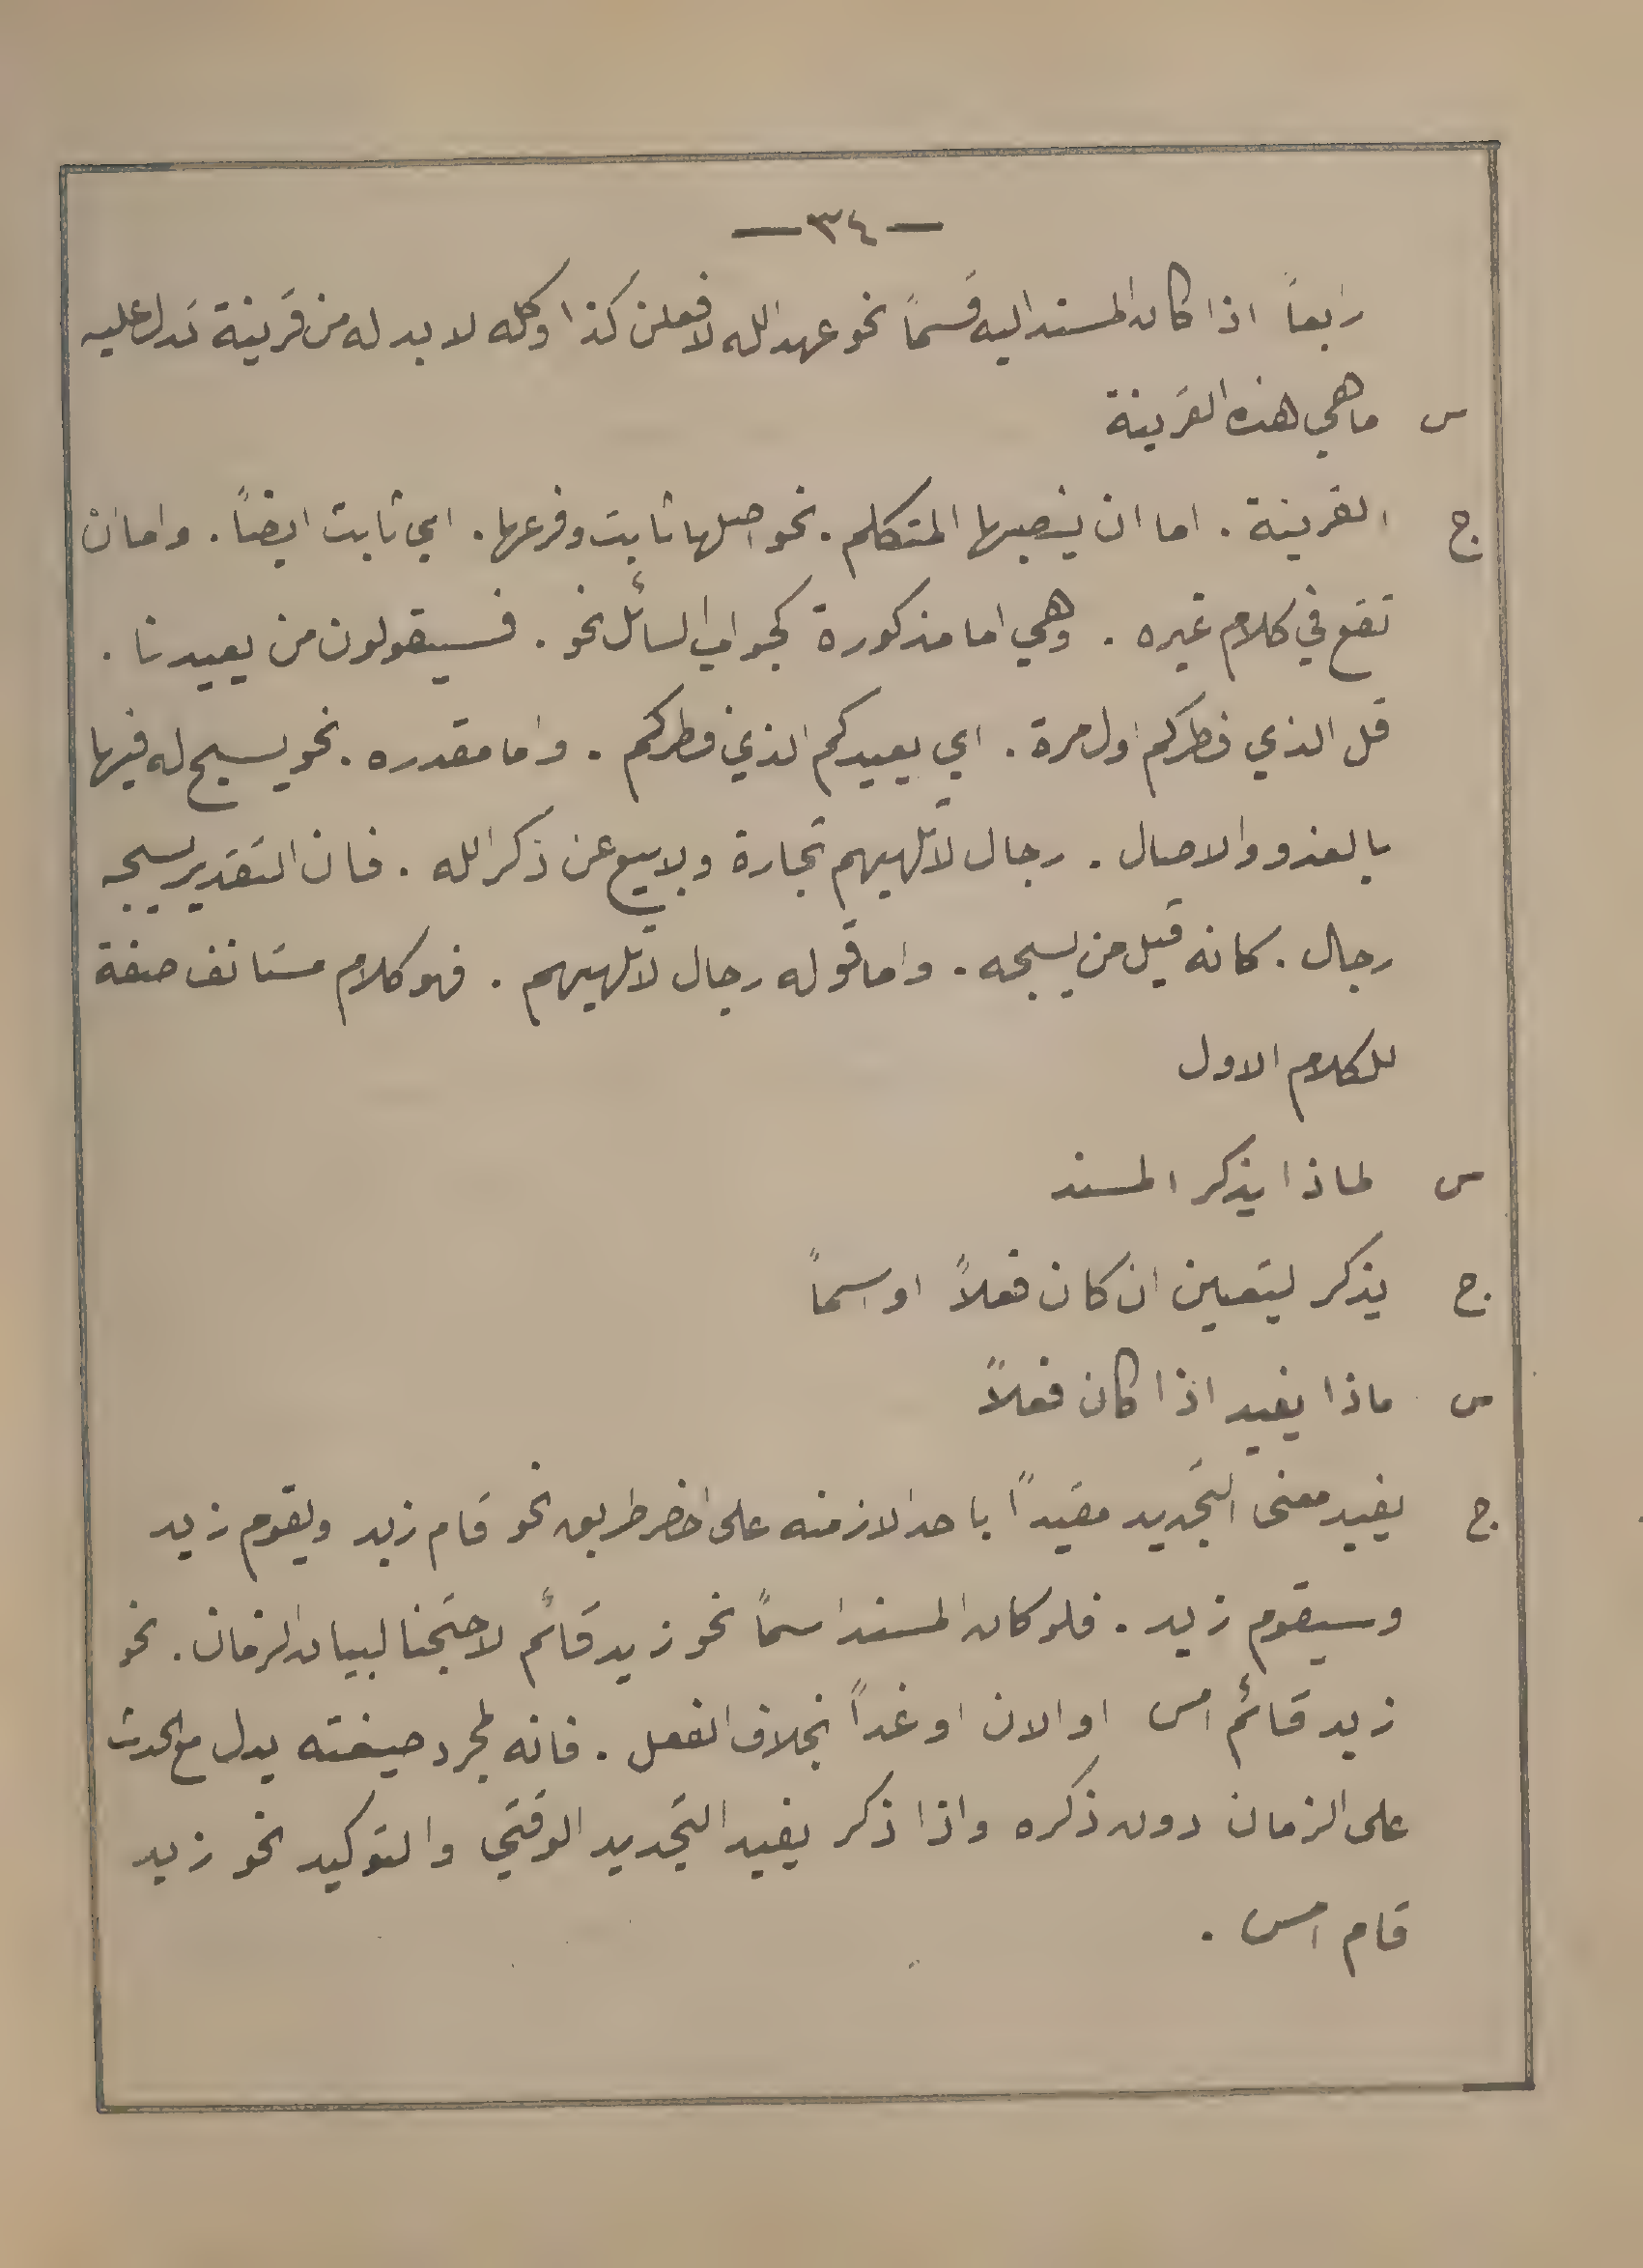 — ٣٤ —
رابعاً اذا كان المسند اليه قسماً نحو عهد الله لافعلن كذا وكله لا بد له من قرينة تدل عليه
س ما هي هذه القرينة
ج القرينة . اما ان ينصبها المتكلم . نحو اصلها ثابت وفرعها . اي ثابت ايضاً . واما ان
تقع في كلام غيره . وهي اما مذكورة كجواب السائل نحو . فسيقولون من يعيدنا .
قل الذي فطركم اول مرة . اي يعيدكم الذي فطركم . واما مقدره . نحو يسبح له فيها
بالغدو والاصال . رجال لا تلهيهم تجارة ولا بيع عن ذكر الله . فان التقدير يسبحه
رجال . كانه قيل من يسبحه . واما قوله رجال لا تلهيهم . فهو كلام مستانف صفة
للكلام الاول
س لماذا يذكر المسند
ج يذكر ليتعين ان كان فعلاً او اسماً
س ماذا يفيد اذا كان فعلاً
ج يفيد معنى التجديد مقيداً باحد الازمنه على اخصر طريق نحو قام زيد ويقوم زيد
وسيقوم زيد . فلو كان المسند اسماً نحو زيد قائم لاحتجنا لبيان الزمان . نحو
زيد قائم امس او الان او غداً بخلاف الفعل . فانه لمجرد صيغته يدل مع الحدث
على الزمان دون ذكره واذا ذكر يفيد التجديد الوقتي والتوكيد نحو زيد
قام امس .